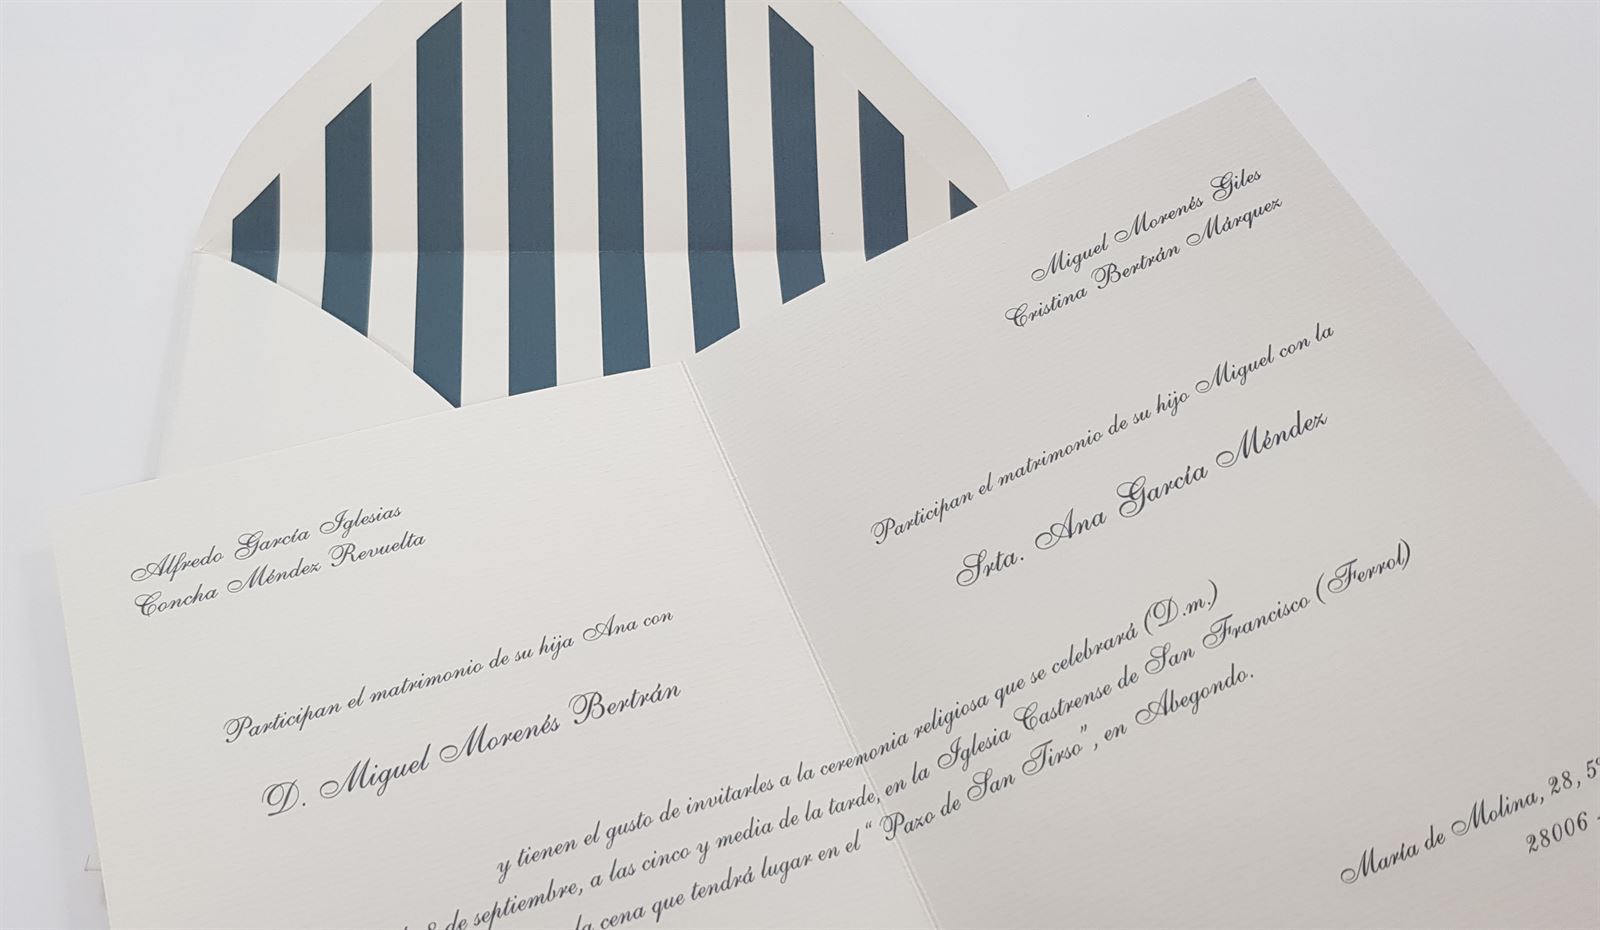 Alfredo García Iglesias
Concha Méndez Revuelta
Participan el matrimonio de su hija Ana con
D. Miguel Morenés Bertrán
Miguel Morenés Giles
Cristina Bertrán Márquez
Participan el matrimonio de su hijo Miguel con la
Srta. Ana García Méndez
y tienen el gusto de invitarles a la ceremonia religiosa que se celebrará (D.m.)
8 de septiembre, a las cinco y media de la tarde, en la Iglesia Castrense de San Francisco (Ferrol)
la cena que tendrá lugar en el “Pazo de San Tirso”, en Abegondo.
María de Molina, 28, 5º
28006